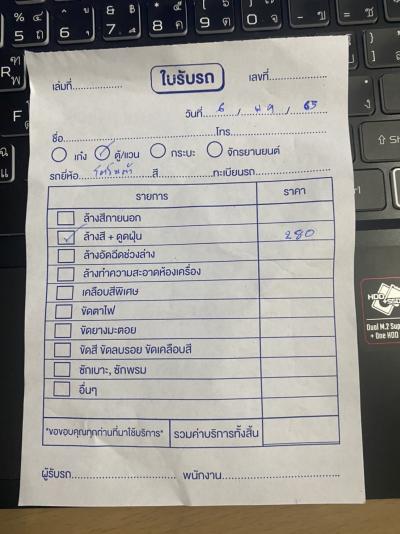 ใบรับรถ
เล่มที่................ เลขที่................
วันที่ 6 / / 65
ชื่อ................ โทร................
เก๋ง ตู้/แวน กระบะ จักรยานยนต์
รถยี่ห้อ โตโยต้า สี................ทะเบียนรถ................
รายการ ราคา
ล้างสีภายนอก
ล้างสี + ดูดฝุ่น 280
ล้างอัดฉีดช่วงล่าง
ล้างทำความสะอาดห้องเครื่อง
เคลือบสีพิเศษ
ขัดตาไฟ
ขัดยางมะตอย
ขัดสี ขัดลบรอย ขัดเคลือบสี
ซักเบาะ, ซักพรม
อื่นๆ
"ขอขอบคุณทุกท่านที่มาใช้บริการ" รวมค่าบริการทั้งสิ้น
ผู้รับรถ................ พนักงาน................
HDD
Dual M.2 Sup
+ One HDD